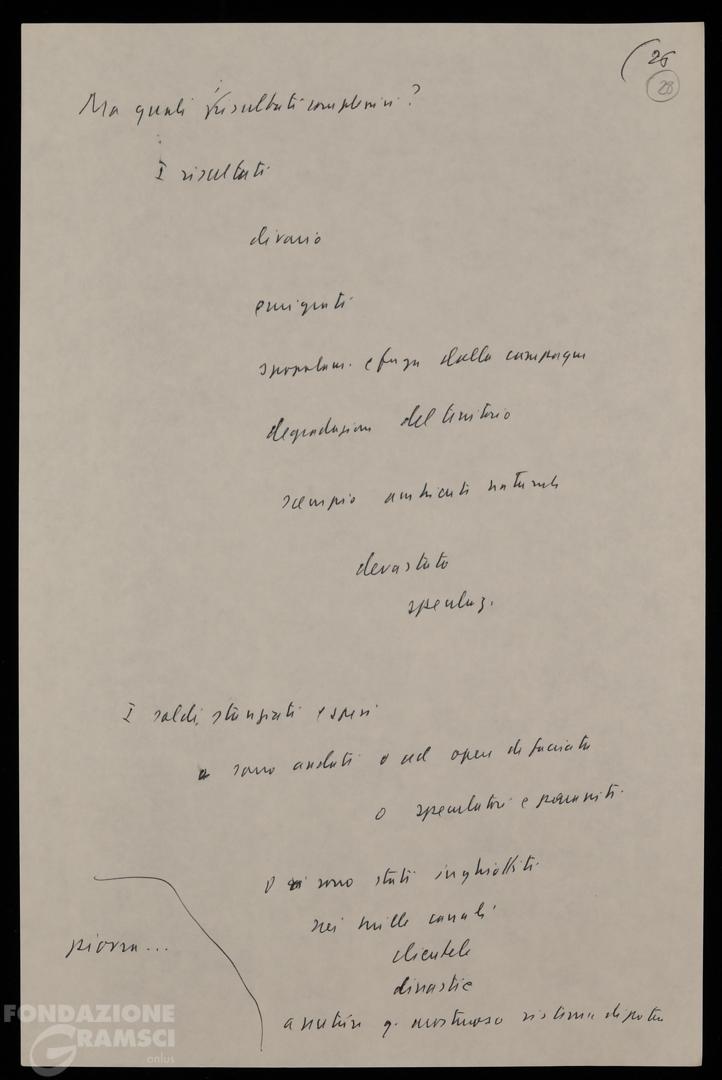 26
28
Ma quali risultati complessivi?
I risultati
divario
emigrati
spopolam. e fuga dalla campagna
degradazione del territorio
scempio ambienti naturali
devastato
speculaz.
I soldi, stanziati e spesi
sono andati o ad opere di facciata
o speculatori e parassiti
o si sono stati inghiottiti
nei mille canali
clientele
dinastie
piovra...
a nutrire q. mostruoso sistema di potere
FONDAZIONE
GRAMSCI
onlus